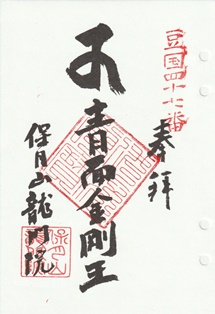 豆国四十七番
奉拝
青面金剛王
保月山龍門院